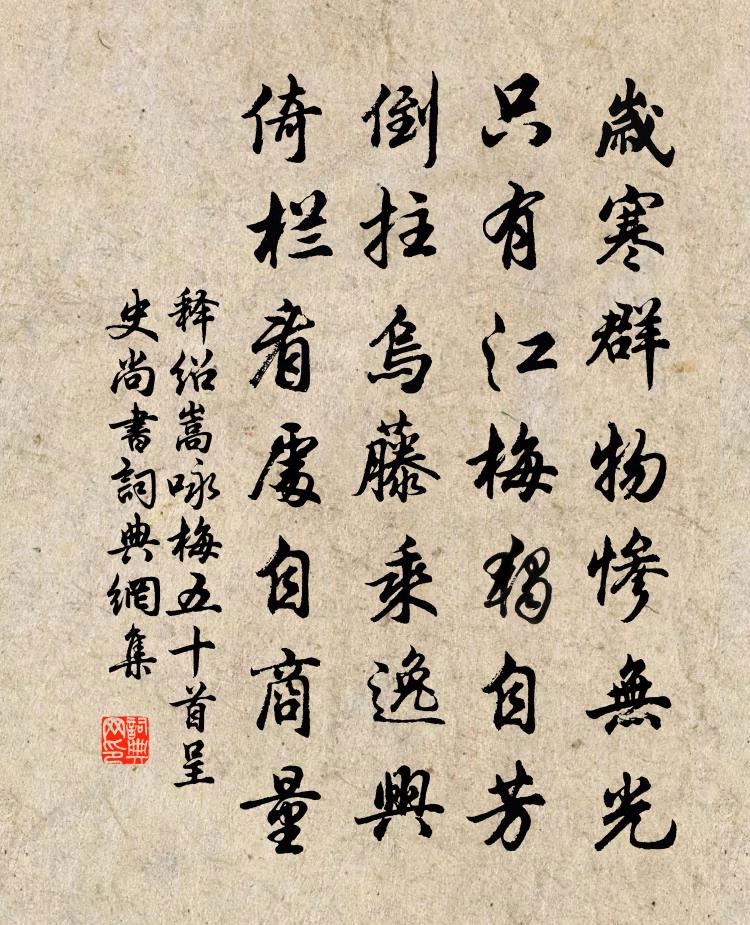 歲寒群物慘無光
只有江梅獨自芳
倒拄烏藤乘逸興
倚栏看處自商量
释绍嵩咏梅五十首呈
史尚書詞典網集
詞典
网印